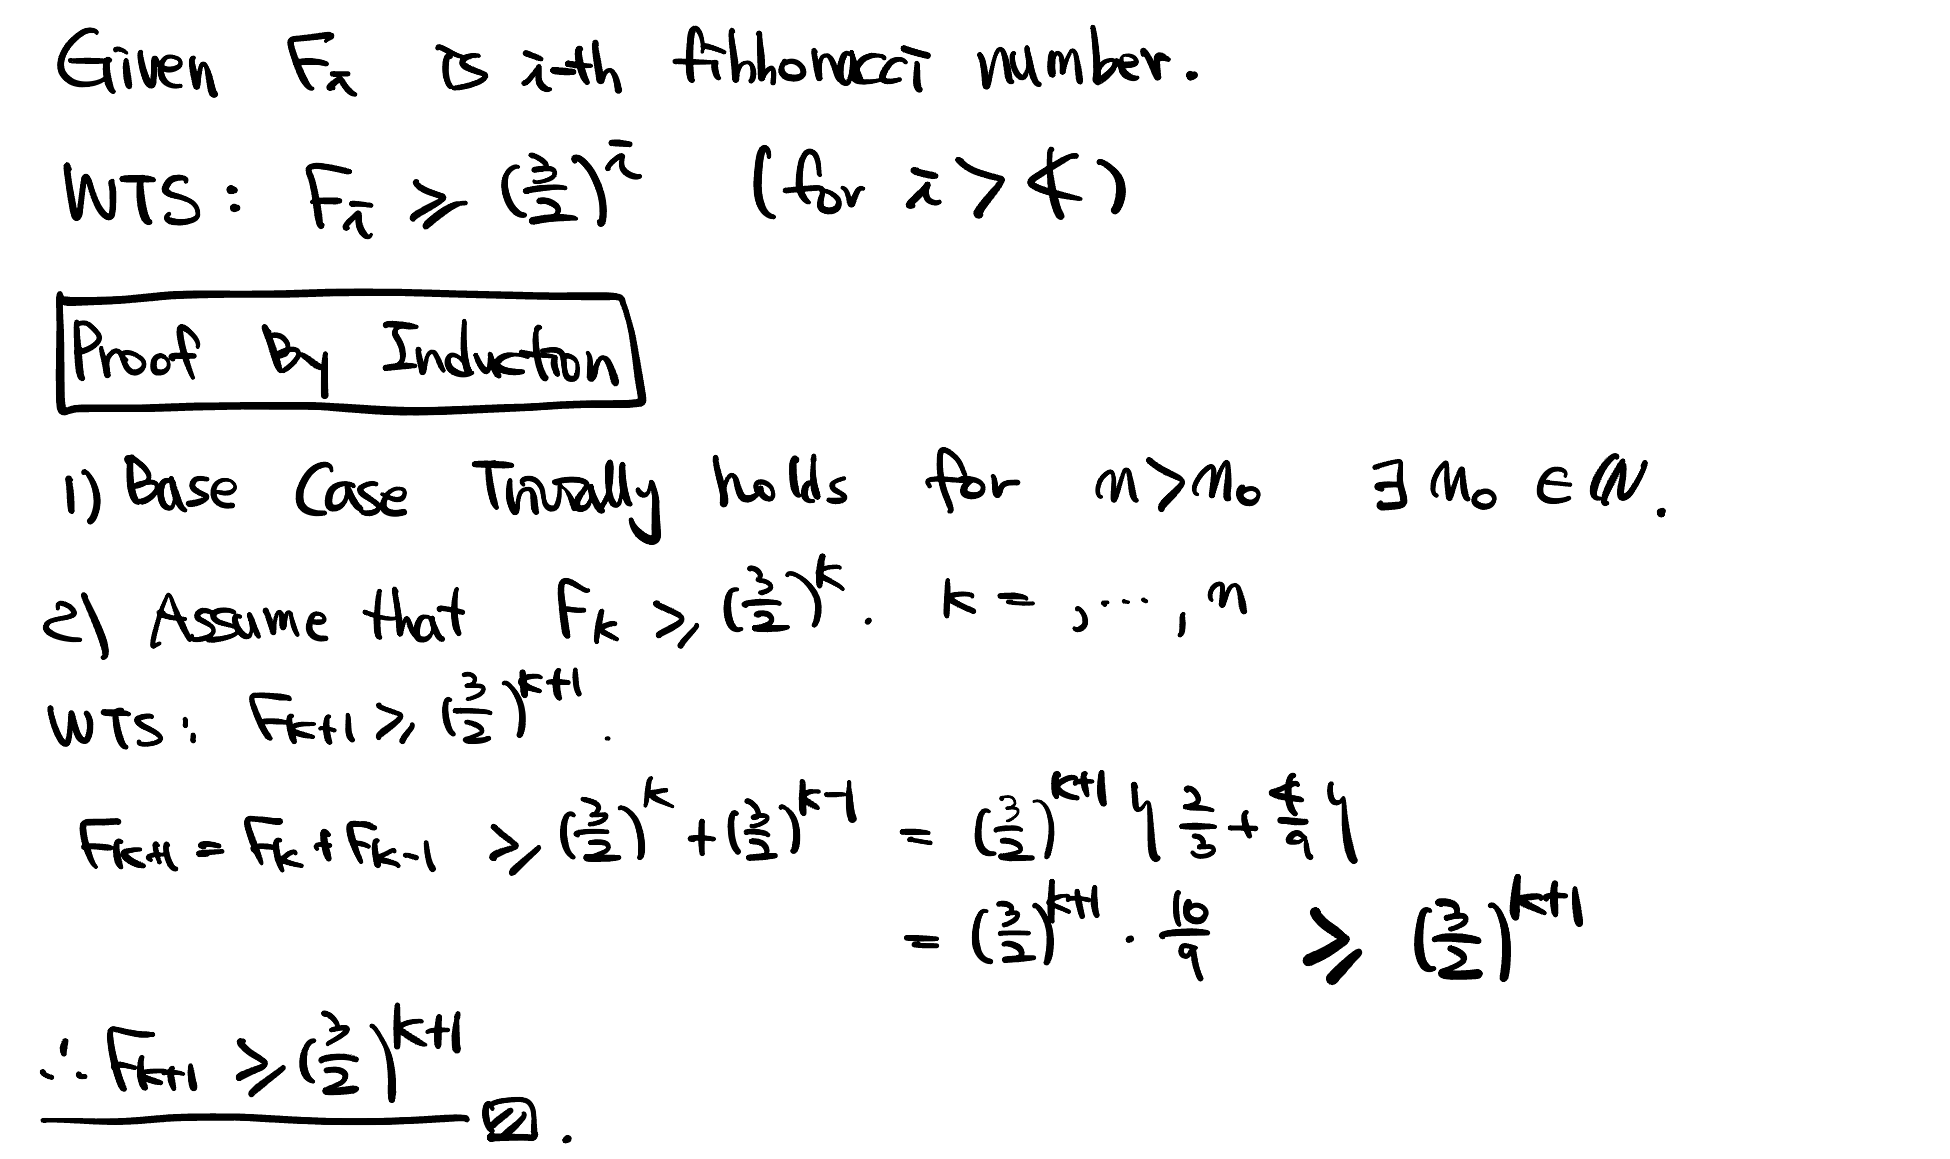 Given Fᵢ is i-th fibhonacci number.
WTS : Fᵢ ⩾ (3/2)^i (for i > 4)
Proof By Induction
1) Base Case Trivially holds for n > n₀ ∃ n₀ ∈ ℕ.
2) Assume that F_k ⩾ (3/2)^k. k = ,⋯, n
WTS : F_{k+1} ⩾ (3/2)^{k+1}.
F_{k+1} = F_k + F_{k-1} ⩾ (3/2)^k + (3/2)^{k-1} = (3/2)^{k+1} { 2/3 + 4/9 }
= (3/2)^{k+1} · 10/9 ⩾ (3/2)^{k+1}
∴ F_{k+1} ⩾ (3/2)^{k+1} ▨.